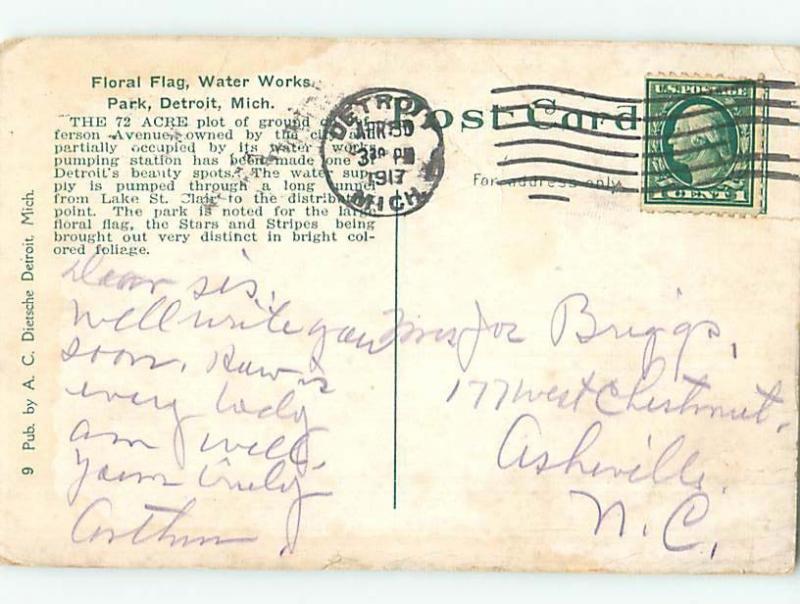 Floral Flag, Water Works
Park, Detroit, Mich.
THE 72 ACRE plot of ground
ferson Avenue, owned by the
partially occupied by its water works
pumping station has been made one
Detroit's beauty spots. The water sup-
ply is pumped through a long tunnel
from Lake St. Clair to the distributing
point. The park is noted for the large
floral flag, the Stars and Stripes being
brought out very distinct in bright col-
ored foliage.
9 Pub. by A. C. Dietsche Detroit, Mich.
Post Card
For address only
DETROIT
APR 30
3 30 PM
1917
MICH.
U.S. POSTAGE
1 CENT 1
Dear sis,
Well write you
soon. How is
every body
am well.
yours truly
Arthur
Mrs Joe Briggs,
177 West Chestnut.
Asheville
N.C.